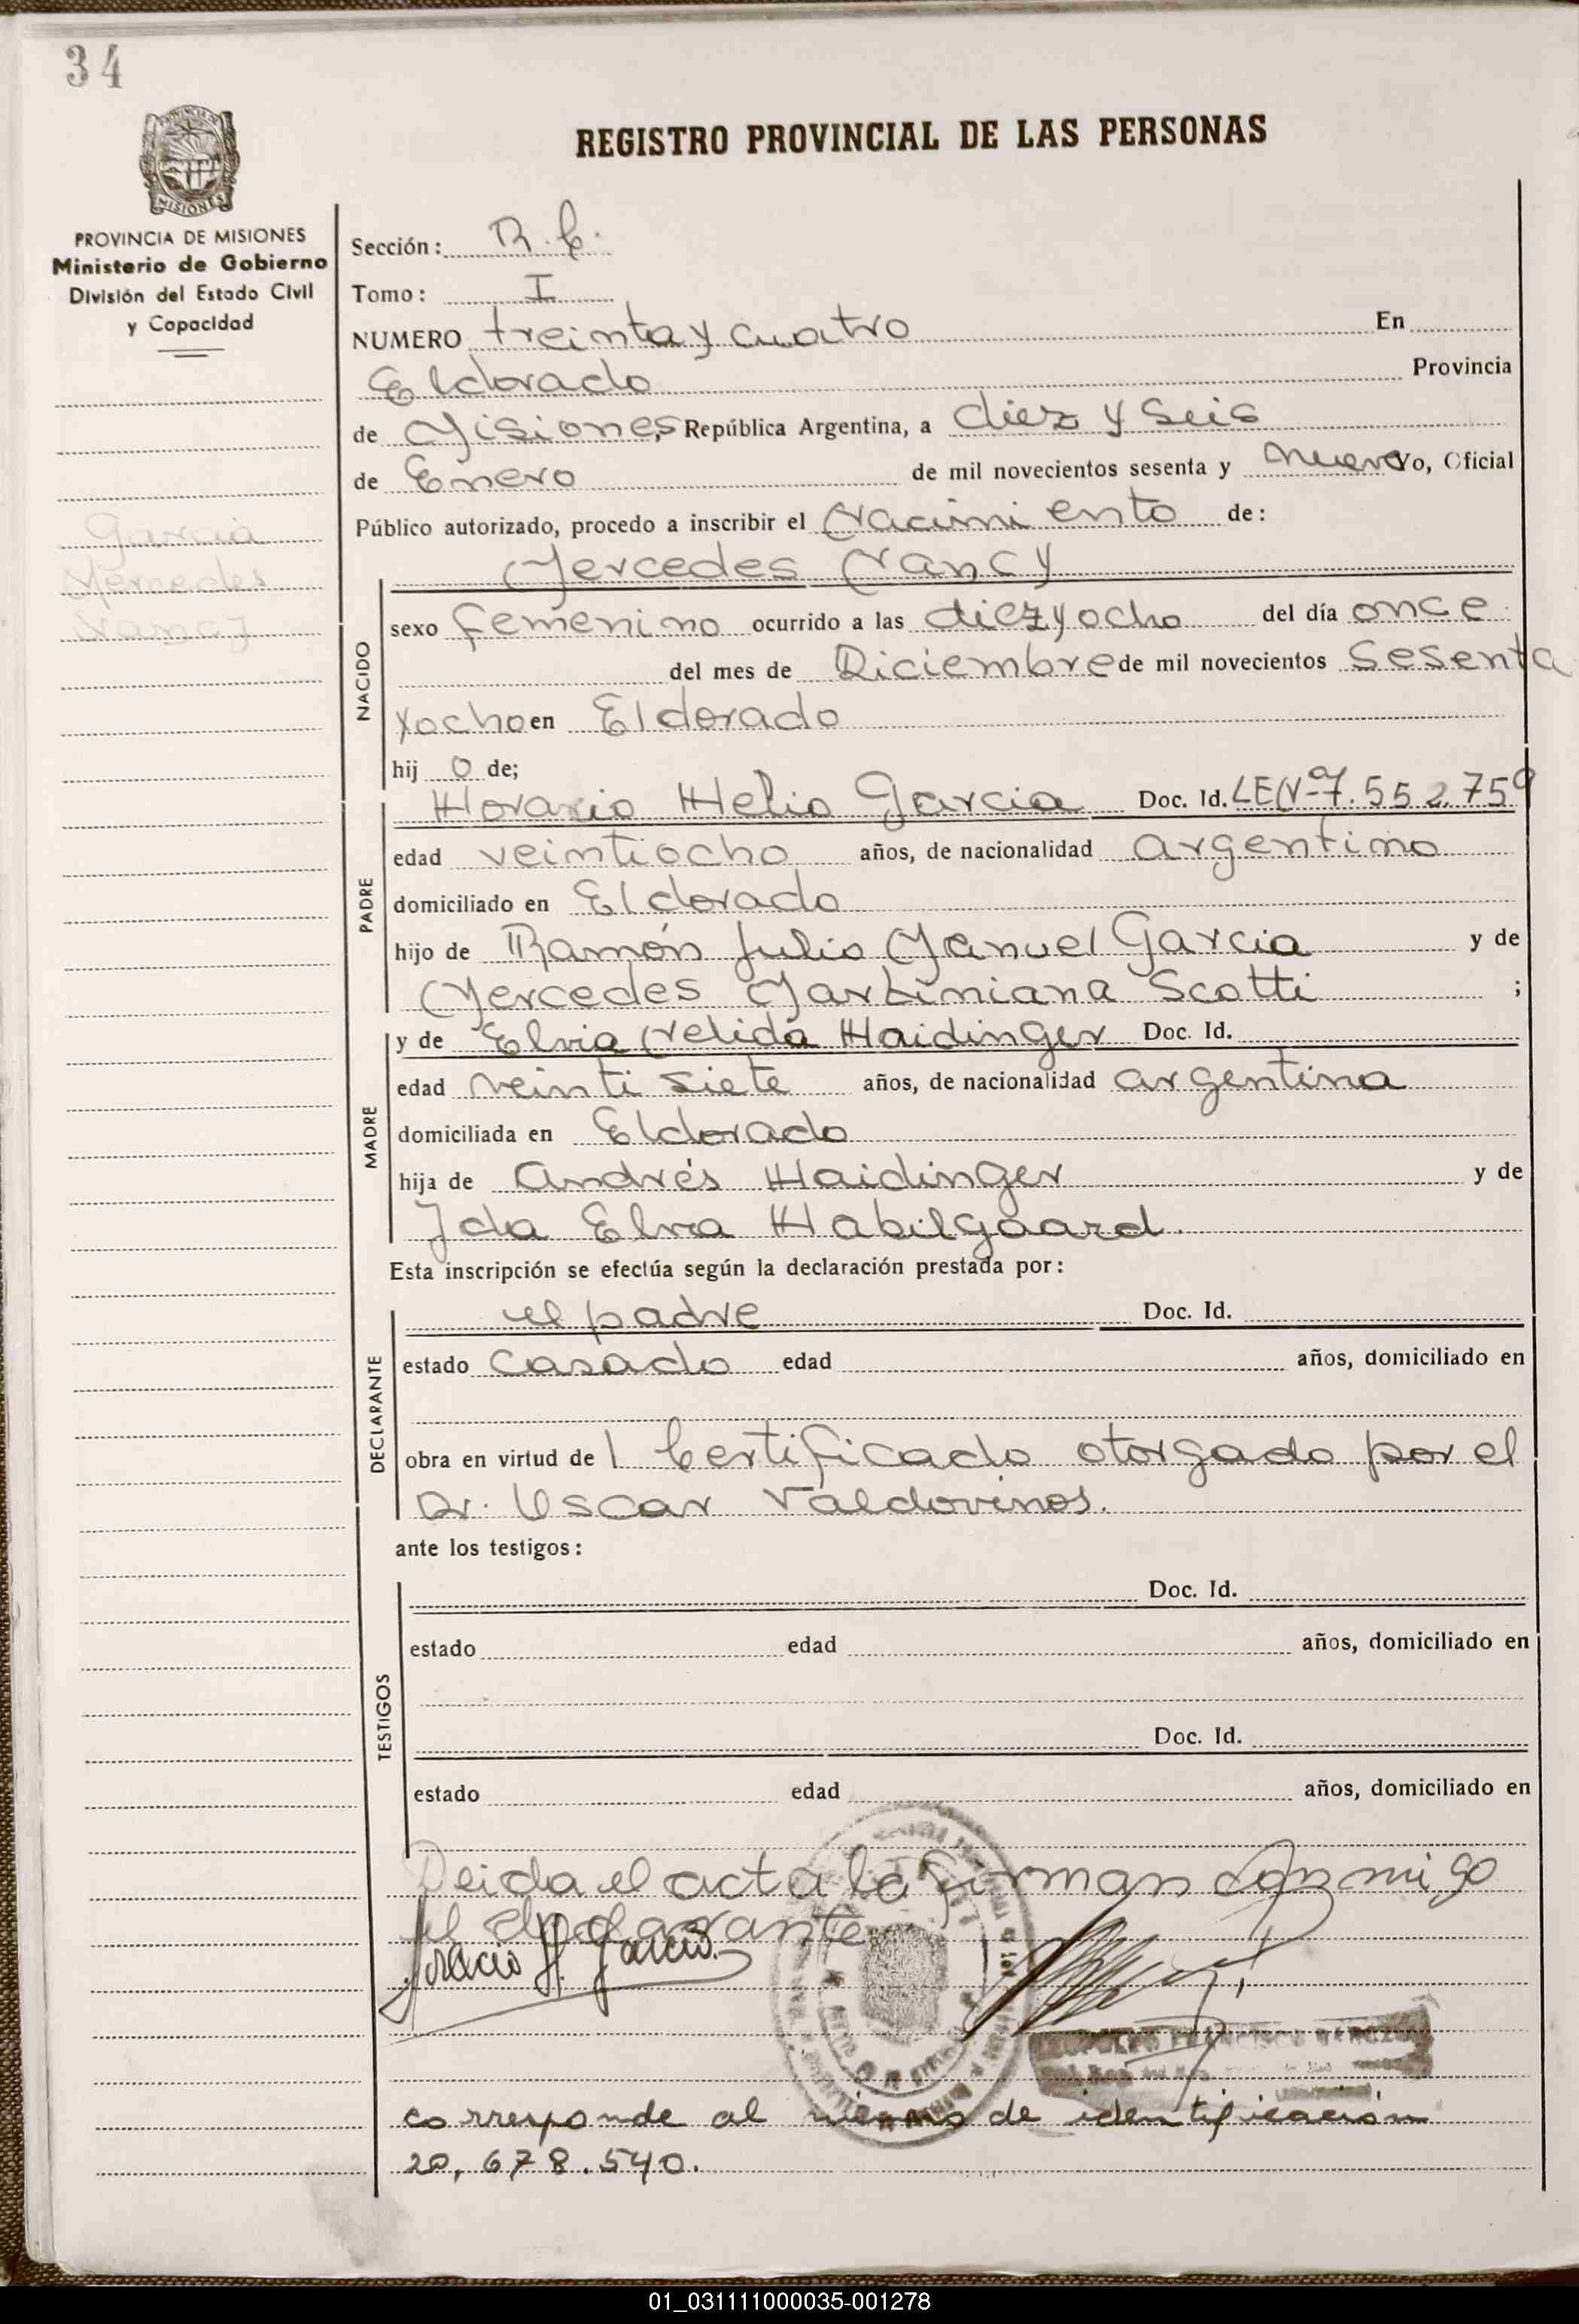 34
REGISTRO PROVINCIAL DE LAS PERSONAS
MISIONES
PROVINCIA DE MISIONES
Ministerio de Gobierno
División del Estado Civil
y Capacidad
Garcia
Mercedes
Nancy
Sección: R.C.
Tomo: I
NUMERO treinta y cuatro En
Eldorado Provincia
de Misiones, República Argentina, a diez y seis
de Enero de mil novecientos sesenta y nueve Yo, Oficial
Público autorizado, procedo a inscribir el Nacimiento de:
Mercedes Nancy
NACIDO
sexo femenino ocurrido a las diez y ocho del día once
del mes de Diciembre de mil novecientos sesenta
y ocho en Eldorado
hij o de;
PADRE
Horacio Helio Garcia Doc. Id. LE Nº 7.552.759
edad veintiocho años, de nacionalidad argentino
domiciliado en Eldorado
hijo de Ramón Julio Manuel Garcia y de
Mercedes Martiniana Scotti ;
MADRE
y de Elvia Nelida Haidinger Doc. Id.
edad veinti siete años, de nacionalidad argentina
domiciliada en Eldorado
hija de Andrés Haidinger y de
Ida Elma Habilgaard.
Esta inscripción se efectúa según la declaración prestada por:
DECLARANTE
el padre Doc. Id.
estado casado edad años, domiciliado en
obra en virtud de 1 Certificado otorgado por el
Dr. Oscar Valdovinos.
ante los testigos:
TESTIGOS
Doc. Id.
estado edad años, domiciliado en
Doc. Id.
estado edad años, domiciliado en
Leida el acta la firman conmigo
el declarante
Horacio H. Garcia
FRANCISCO
corresponde al número de identificación
20.678.540.
01_031111000035-001278